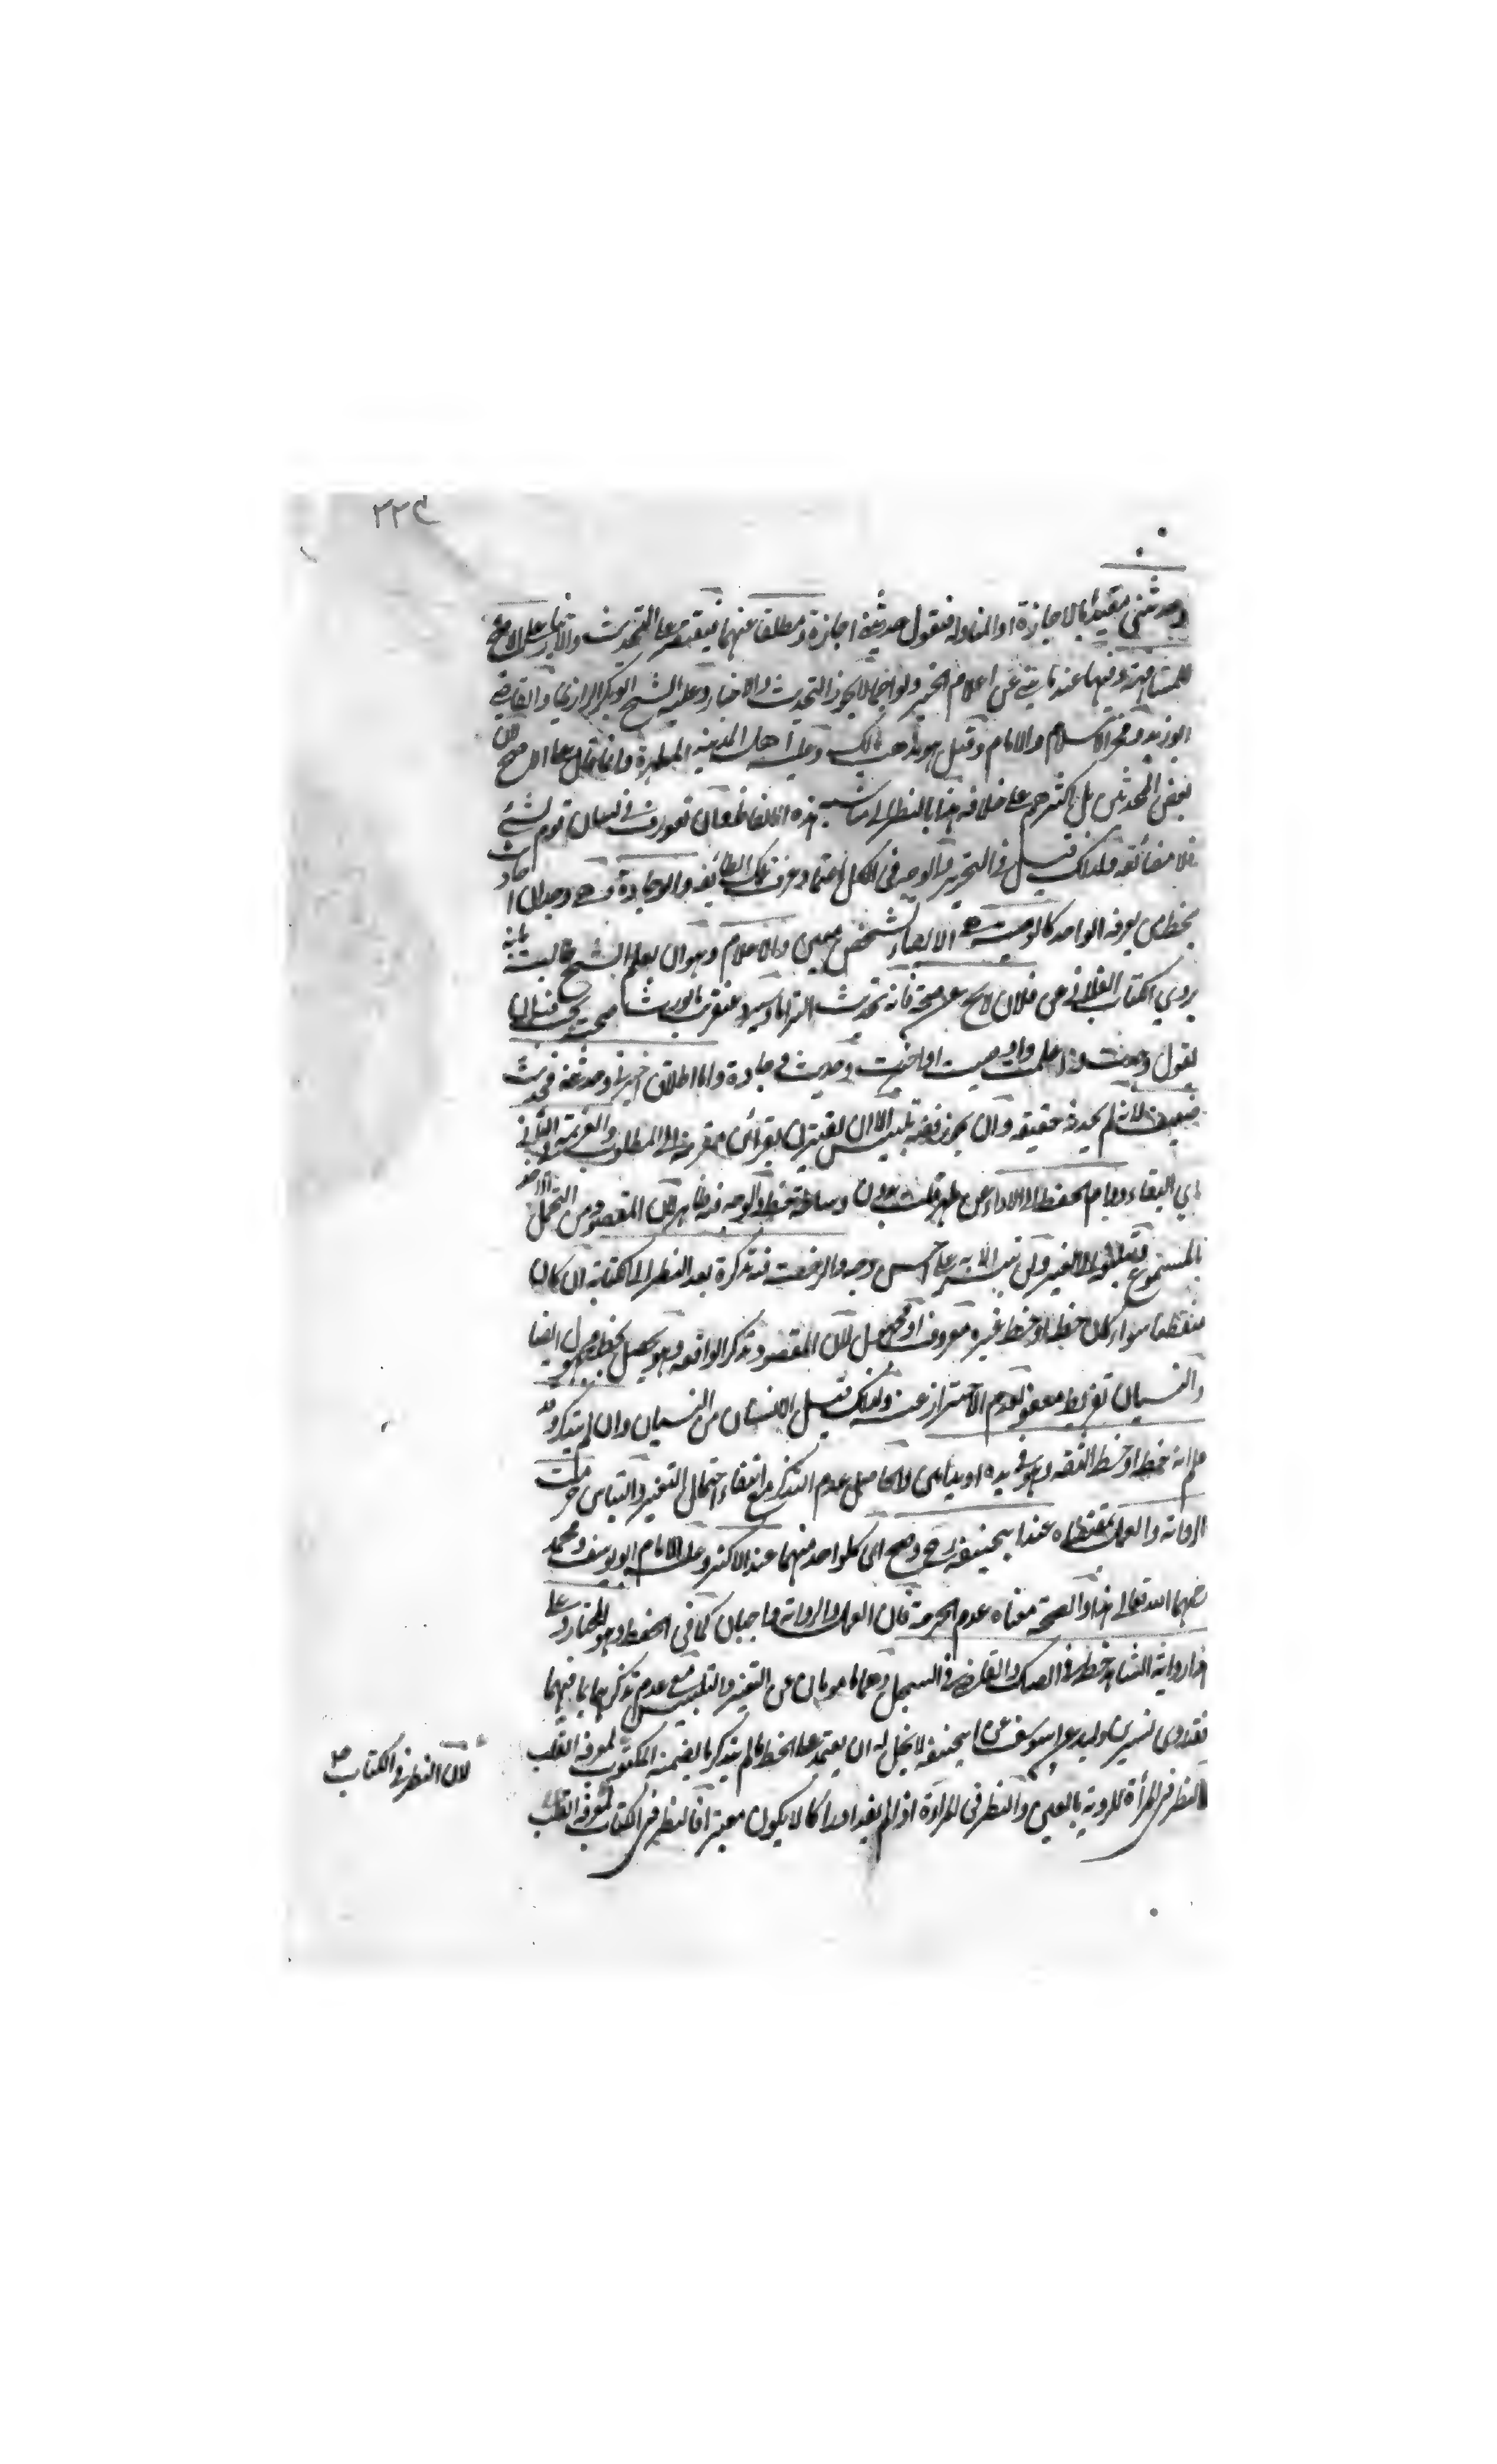 ٢٢٤
وحدثني مقيدا بالاجازة او المناولة فيقول حدثني اجازة ومطلقا عنهما فيقتصر على التحديث والاخبار على الاصح
للمشافهة وفيها عند عن اعلام الخبر ولو اجمالا يجوز التحديث والاخبار وعليه الشيخ ابو بكر الرازي والقاضي
ابو زيد وفخر الاسلام والامام وقيل هو مذهب مالك وعليه اهل المدينة المطهرة وانما قال على الاصح لان
بعض المحدثين بل اكثرهم على خلافه هذا بالنظر الى هذه الالفاظ فان تعورف في لسان قوم لشيء
فلا مضائقة ولذلك قيل في التحرير والوجه في الكل اعتماد عرف تلك الطائفة والوجادة وهي وجدان احاديث
بخط من يعرفه الواحد كالوصية هي الايصاء لشخص معين والاعلام وهو ان يعلم الشيخ طالبه بانه
يروي الكتاب الفلاني عن فلان لا صحة فانه تحديث التزاما عنقريب
يقول وجدت اذا علمت او وصيت او اخبرت وحديث وجادة واما اطلاق اخبرني وحدثني فحديث
ضعيف لانه لم يحدث حقيقة وان جوز ففيه تلبيس الا ان يقترن بقرائن مقربة الى المطلوب والعزيمة الثاني
اي البقاء دوام الحفظ الى الاداء عن ظهر قلب بدون وساطة خط والوجه فيه ظاهر لان المقصود من التحمل الاداء
المستموع وتبليغه الى الغير على احسن وجه والرخصة فيه تذكره بعد النظر الى الكتابة ان كان
منقطعا سواء كان خطه او خط غيره معروف او مجهول لان المقصود تذكر الواقعة وهو يحصل بخط مجهول ايضا
والنسيان تفريط معفو لعدم الاحتراز عنه ولذلك قيل الانسان من النسيان وان لم يتذكر وقد
علم انه خطه او خط الثقة وهو في يده او يد امين والحاصل عدم التذكر مع انتفاء احتمال التغيير والتباس حرمت
الرواية والعمل بمقتضاه عند ابيحنيفه رح وصح اي كلواحد منهما عند الاكثر وعليه الامام ابو يوسف ومحمد
رضهما الله تعالى هذا والصحة معناه عدم الحرمة فان العمل والرواية واجبان كما في الحفظ وهو المختار وعلى
هذا رواية الشاهد خطه في الصك والقاضي في السجل وهما مامونان عن التغيير والتلبيس مع عدم تذكرهما بما فيهما
فقد روى بشر بن وليد عن ابي يوسف عن ابيحنيفه لا يحل له ان يعتمد على الخط ما لم يتذكر ما يضمنه المكتوب لمعرفة القلب
لان النظر في الكتاب صح
كالنظر في المرآة للرؤية بالعين والنظر في المرآة اذا لم يفد ادراكا لا يكون معتبرا فالنظر في الكتاب لمعرفة القلب